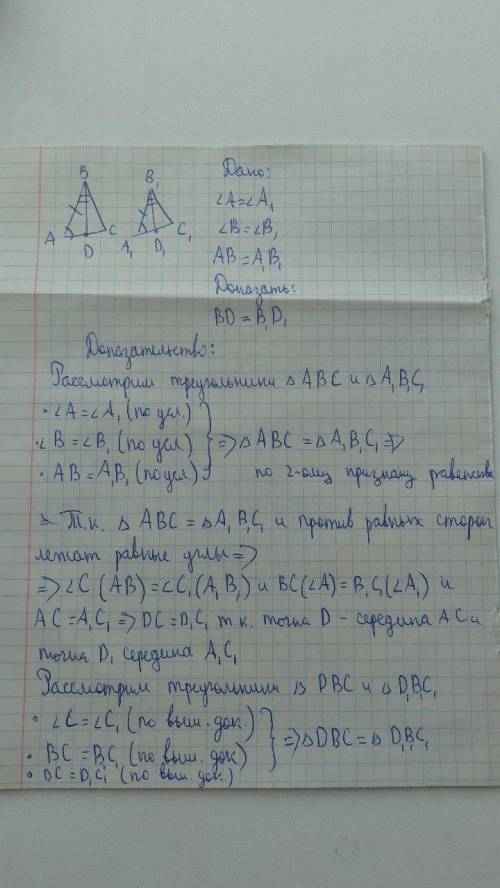 B B₁
A D C A₁ D₁ C₁
Дано:
∠A=∠A₁
∠B=∠B₁
AB=A₁B₁
Доказать:
BD=B₁D₁
Доказательство:
Рассмотрим треугольники △ABC и △A₁B₁C₁
• ∠A=∠A₁ (по усл.)
• ∠B=∠B₁ (по усл) } ⇒ △ABC = △A₁B₁C₁ ⇒
• AB=A₁B₁ (по усл) по 2-ому признаку равенства
⇒ Т.к. △ABC = △A₁B₁C₁ и против равных сторон
лежат равные углы ⇒
⇒ ∠C (AB)=∠C₁ (A₁B₁) и BC(∠A)=B₁C₁(∠A₁) и
AC=A₁C₁ ⇒ DC=D₁C₁ т.к. точка D - середина AC и
точка D₁ середина A₁C₁
Рассмотрим треугольники △DBC и △D₁B₁C₁
• ∠C=∠C₁ (по выш. док.)
• BC=B₁C₁ (по выш. док) } ⇒ △DBC=△D₁B₁C₁
• DC=D₁C₁ (по выш. док.)